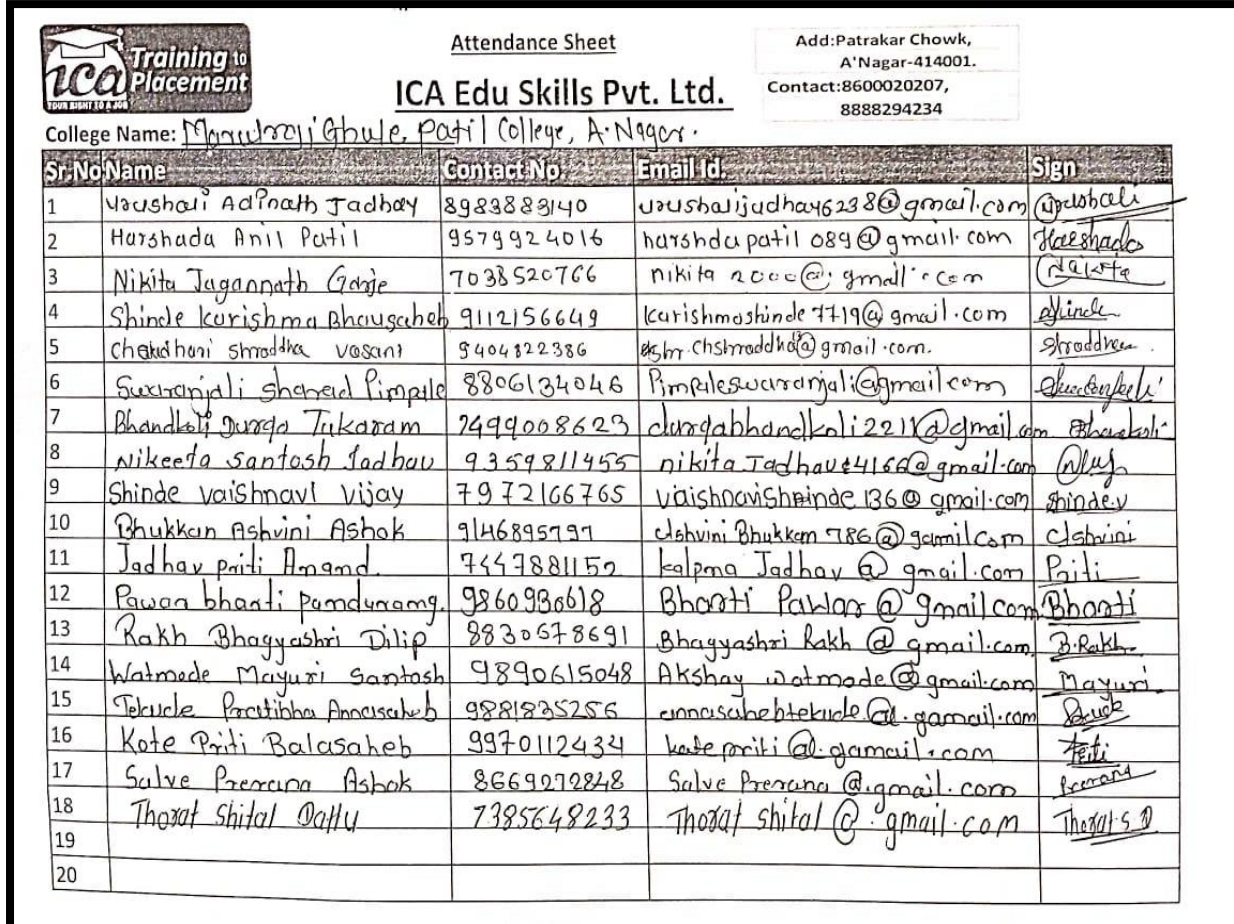 Training to
ica Placement
YOUR RIGHT TO A JOB
Attendance Sheet
ICA Edu Skills Pvt. Ltd.
Add:Patrakar Chowk,
A'Nagar-414001.
Contact:8600020207,
8888294234
College Name: Marutraoji Ghule Patil College, A. Nagar.
Sr.No Name Contact No. Email Id. Sign
1 Vrushali Adinath Jadhav 8983883140 vrushalijadhav6238@gmail.com Vrushali
2 Harshada Anil Patil 9579924016 harshdapatil089@gmail.com Harshada
3 Nikita Jagannath Garje 7038520766 nikita2000@.gmail.com Nikita
4 Shinde Karishma Bhausaheb 9112156649 karishmashinde7719@gmail.com Shinde
5 shraddha vasant 9404822386 Shraddha
6 Swaranjali Sharad Pimpale 8806134046 Pimpaleswaranjali@gmail.com
7 Bhandkoli Durga Tukaram 7499008623 durgabhandkoli2211@gmail.com Bhandkoli
8 Nikeeta Santosh Jadhav 9359811455 @gmail.com
9 Shinde vaishnavi vijay 7972166765 @gmail.com Shinde.v
10 Bhukkan Ashvini Ashok 9146895797 Ashvini Bhukkan 786@gamilcom Ashvini
11 Jadhav Priti Anand. 7447881152 kalpna Jadhav @ gmail.com Priti
12 Pawar bharti pandurang. 9860936618 Bharti Pawar @ gmail com Bharti
13 Rakh Bhagyashri Dilip 8830578691 Bhagyashri Rakh @ gmail.com B.Rakh
14 Watmode Mayuri Santosh 9890615048 Akshay watmode@gmail.com Mayuri
15 Tekude Pratibha Annasaheb 9881835256 annasahebtekude@.gamail.com
16 Kote Priti Balasaheb 9970112434 kote priti @.gamail.com Priti
17 Salve Prerana Ashok 8669272848 Salve Prerana @.gmail.com Prerana
18 Thorat Shital Dattu 7385648233 Thorat shital @.gmail.com Thorat S D
19
20